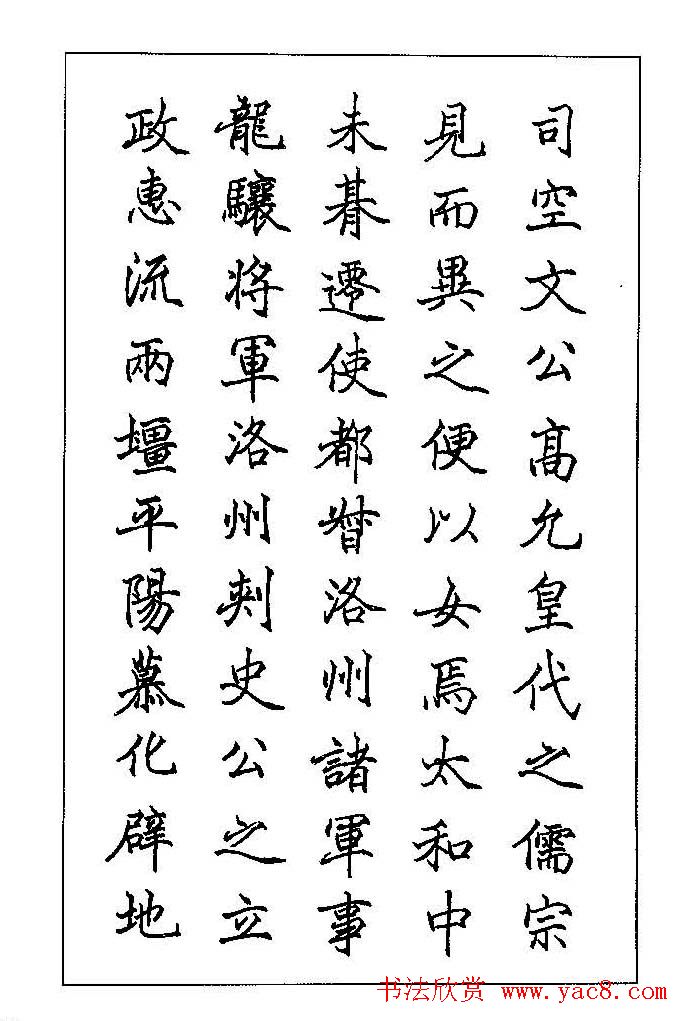 司空文公高允皇代之儒宗
見而異之便以女焉太和中
未朞遷使都督洛州諸軍事
龍驤將軍洛州刺史公之立
政惠流兩壃平陽慕化辟地
书法欣赏 www.yac8.com